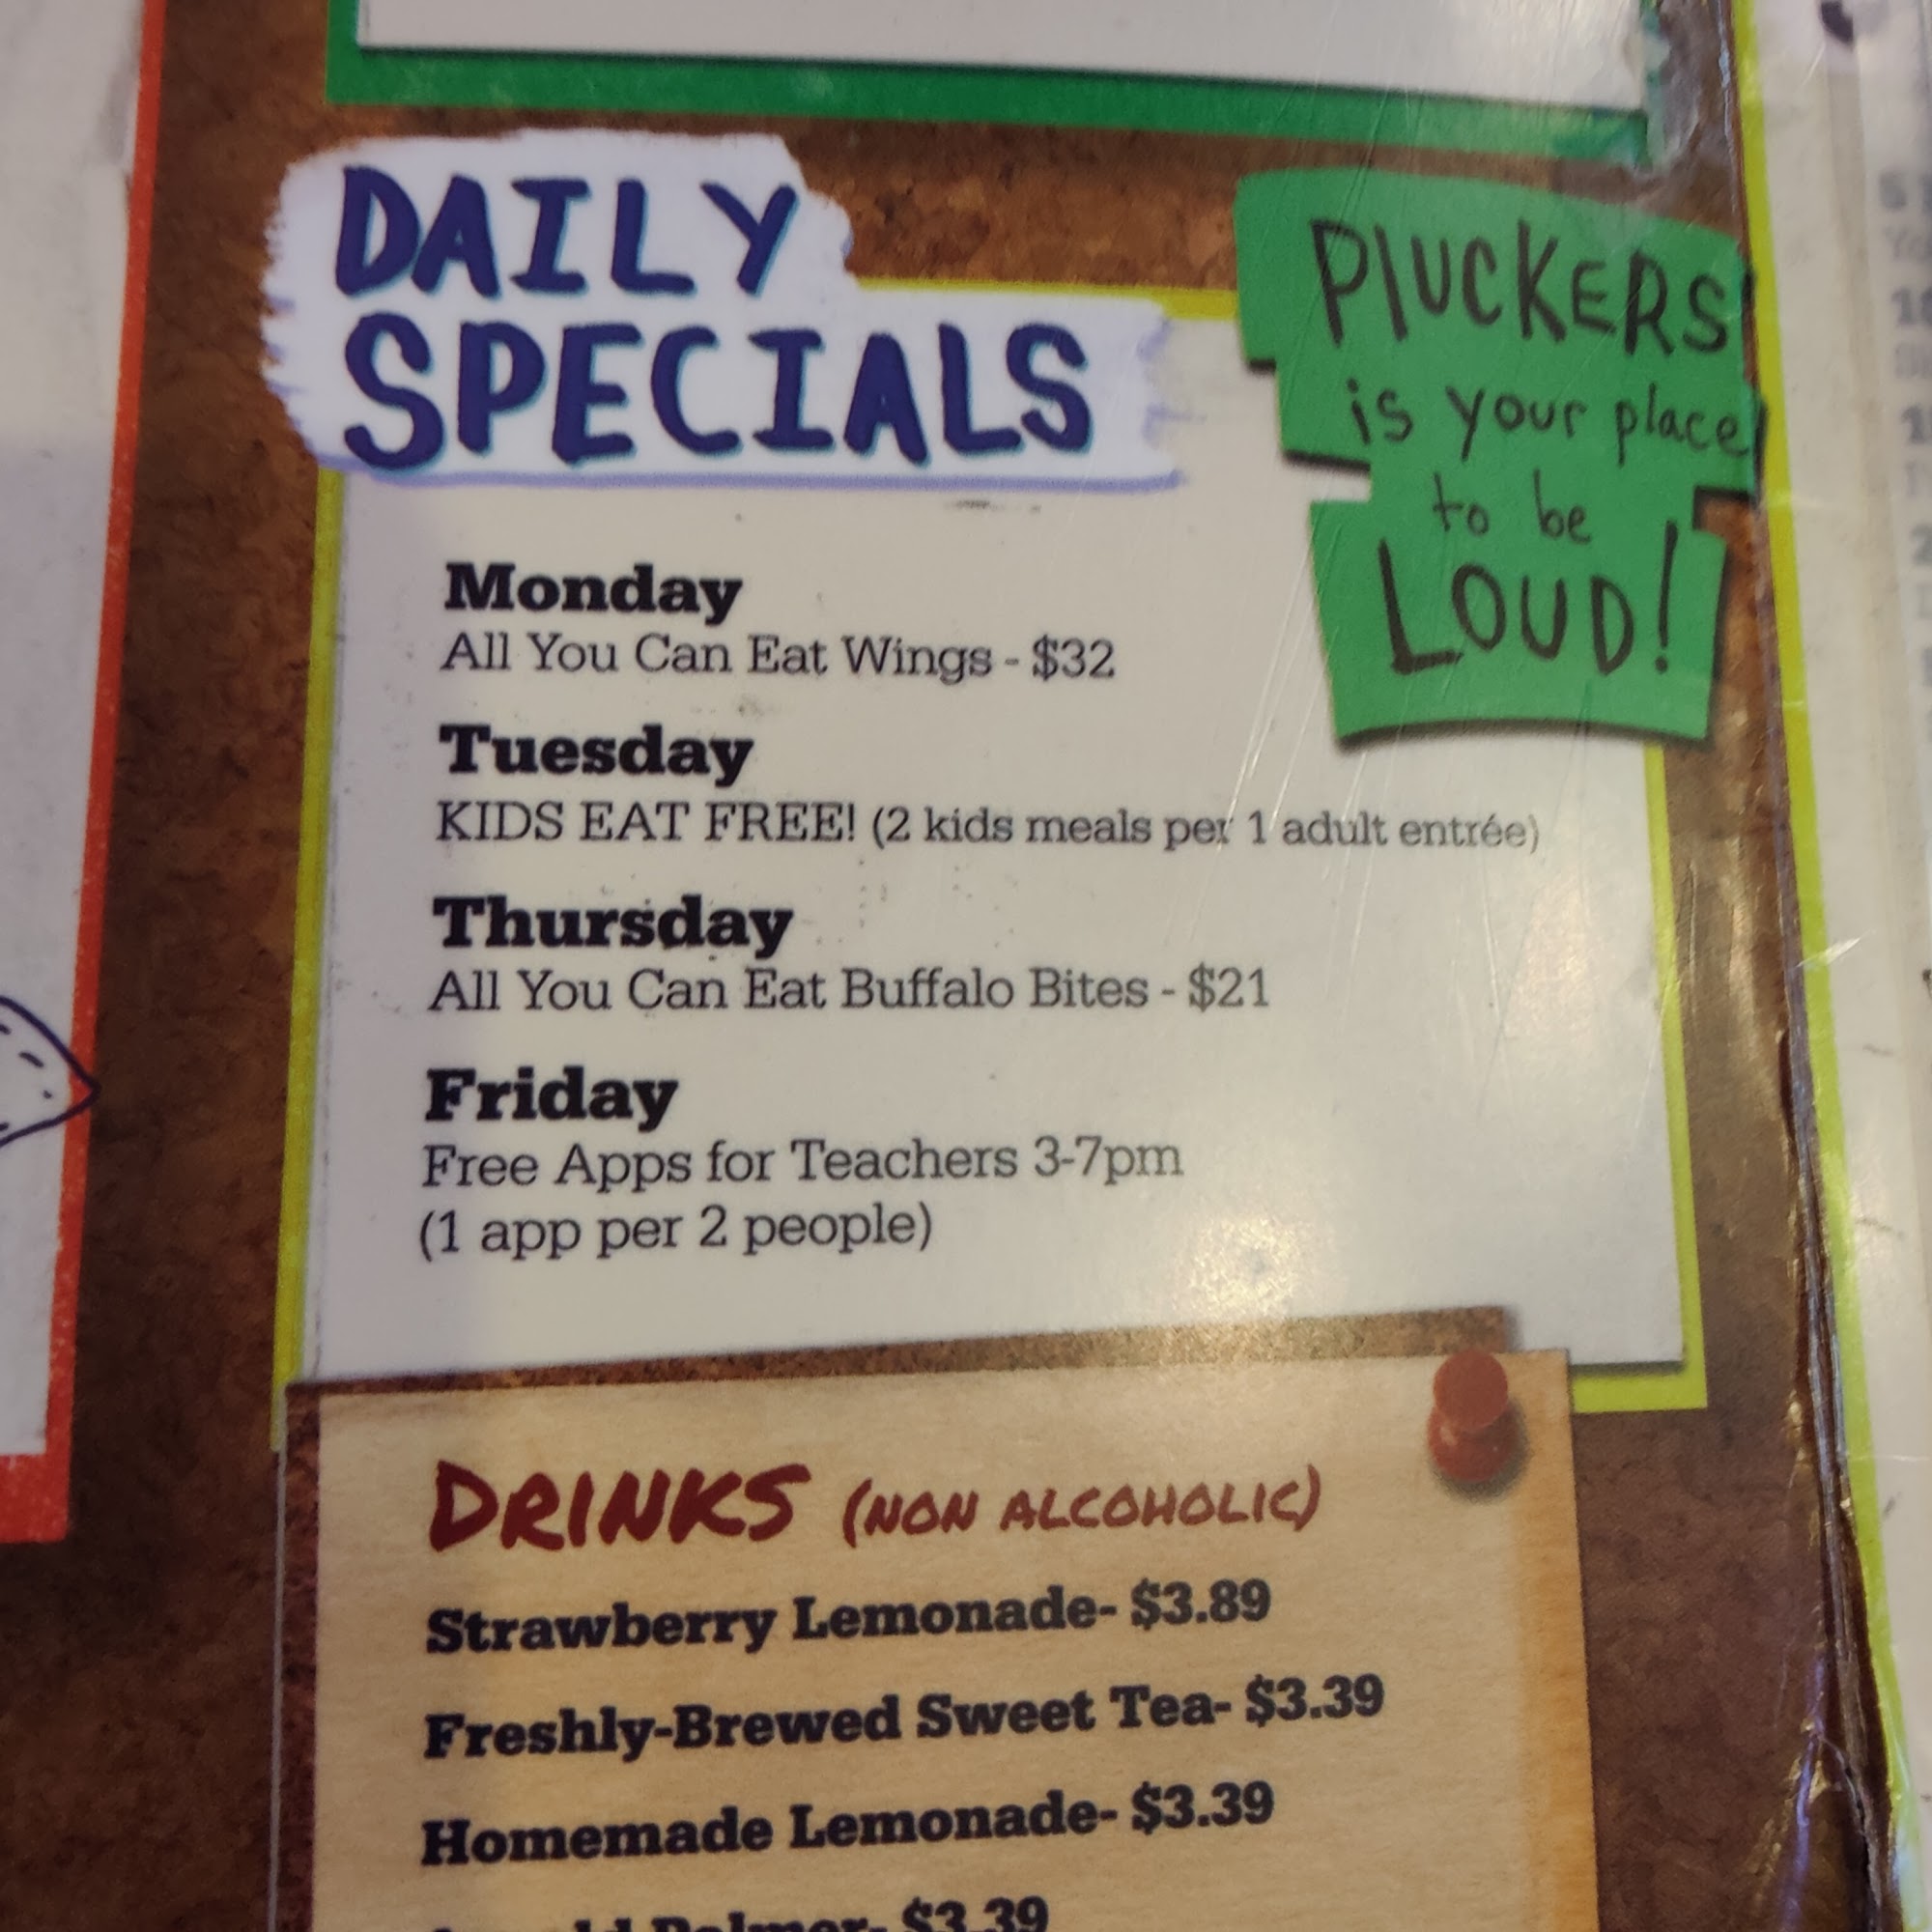 DAILY
SPECIALS
PLUCKERS
is your place
to be
LOUD!
Monday
All You Can Eat Wings - $32
Tuesday
KIDS EAT FREE! (2 kids meals per 1 adult entrée)
Thursday
All You Can Eat Buffalo Bites - $21
Friday
Free Apps for Teachers 3-7pm
(1 app per 2 people)
DRINKS (NON ALCOHOLIC)
Strawberry Lemonade- $3.89
Freshly-Brewed Sweet Tea- $3.39
Homemade Lemonade- $3.39
Arnold Palmer- $3.39